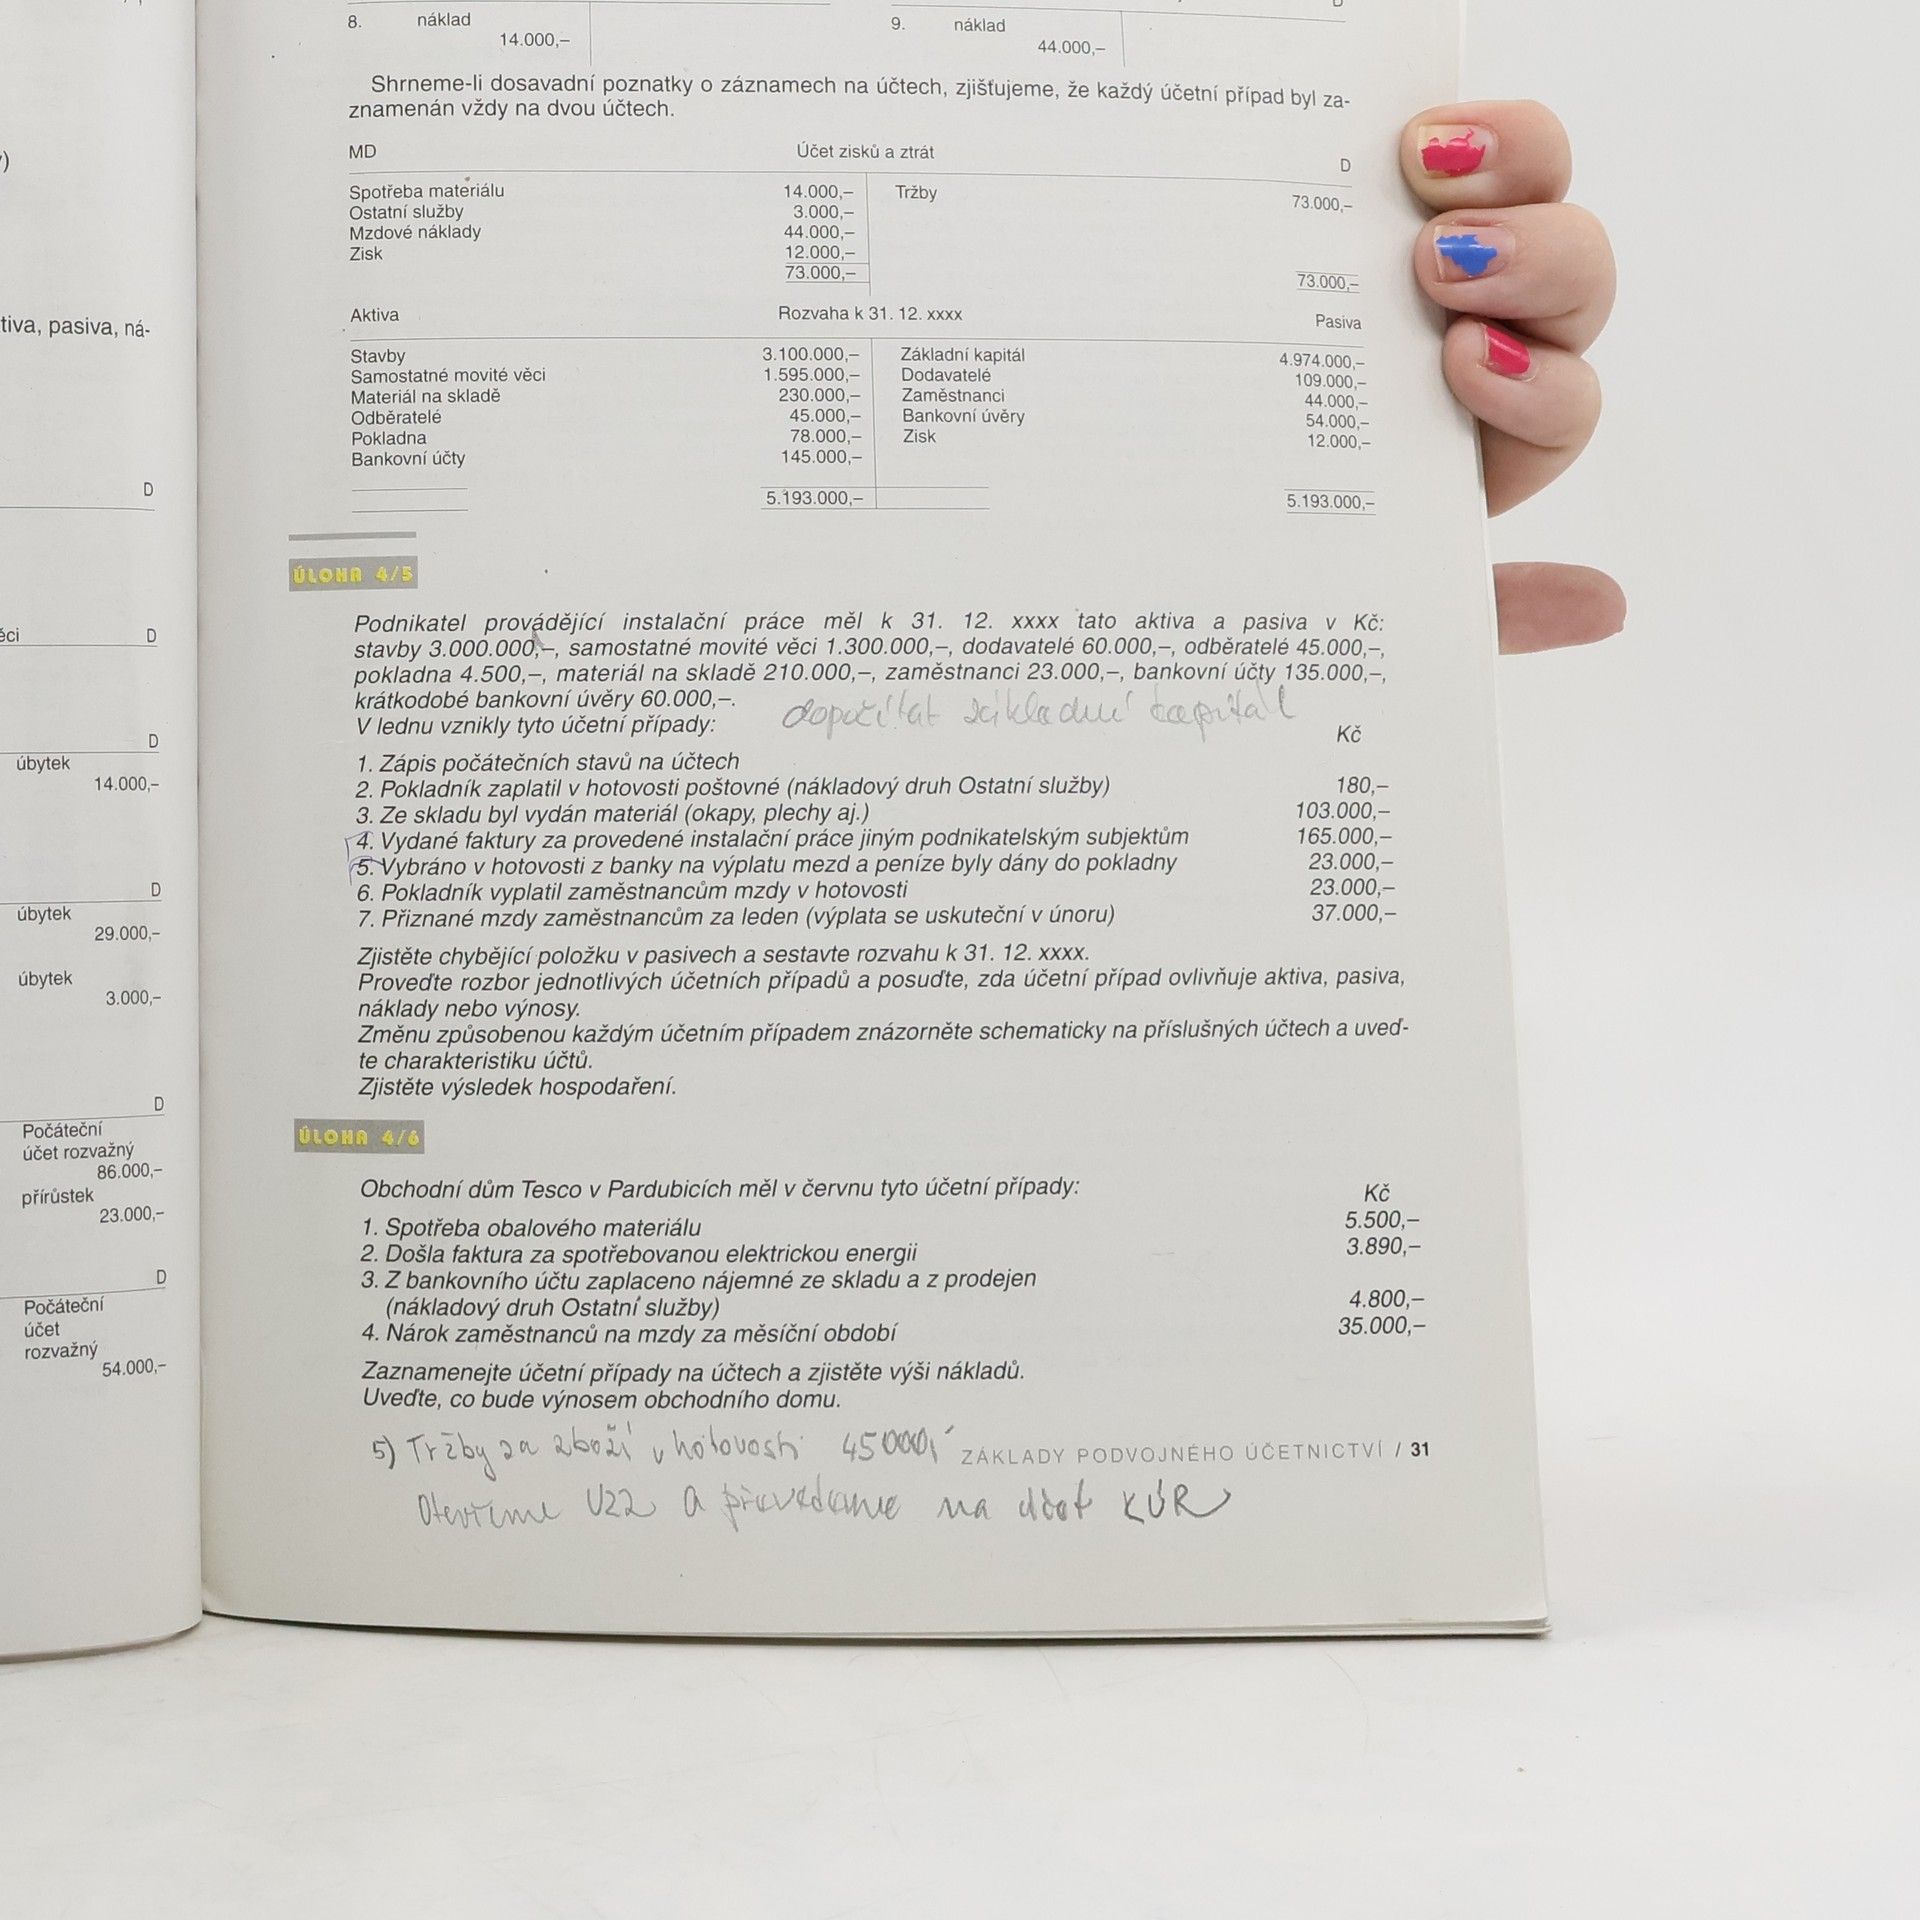 8. náklad 14.000,–
9. náklad 44.000,–
D
Shrneme-li dosavadní poznatky o záznamech na účtech, zjišťujeme, že každý účetní případ byl za-
znamenán vždy na dvou účtech.
MD Účet zisků a ztrát D
Spotřeba materiálu 14.000,– Tržby 73.000,–
Ostatní služby 3.000,–
Mzdové náklady 44.000,–
Zisk 12.000,–
73.000,– 73.000,–
Aktiva Rozvaha k 31. 12. xxxx Pasiva
Stavby 3.100.000,– Základní kapitál 4.974.000,–
Samostatné movité věci 1.595.000,– Dodavatelé 109.000,–
Materiál na skladě 230.000,– Zaměstnanci 44.000,–
Odběratelé 45.000,– Bankovní úvěry 54.000,–
Pokladna 78.000,– Zisk 12.000,–
Bankovní účty 145.000,–
5.193.000,– 5.193.000,–
ÚLOHA 4/5
Podnikatel provádějící instalační práce měl k 31. 12. xxxx tato aktiva a pasiva v Kč:
stavby 3.000.000,–, samostatné movité věci 1.300.000,–, dodavatelé 60.000,–, odběratelé 45.000,–,
pokladna 4.500,–, materiál na skladě 210.000,–, zaměstnanci 23.000,–, bankovní účty 135.000,–,
krátkodobé bankovní úvěry 60.000,–.
dopočítat základní kapitál
V lednu vznikly tyto účetní případy: Kč
1. Zápis počátečních stavů na účtech
2. Pokladník zaplatil v hotovosti poštovné (nákladový druh Ostatní služby) 180,–
3. Ze skladu byl vydán materiál (okapy, plechy aj.) 103.000,–
4. Vydané faktury za provedené instalační práce jiným podnikatelským subjektům 165.000,–
5. Vybráno v hotovosti z banky na výplatu mezd a peníze byly dány do pokladny 23.000,–
6. Pokladník vyplatil zaměstnancům mzdy v hotovosti 23.000,–
7. Přiznané mzdy zaměstnancům za leden (výplata se uskuteční v únoru) 37.000,–
Zjistěte chybějící položku v pasivech a sestavte rozvahu k 31. 12. xxxx.
Proveďte rozbor jednotlivých účetních případů a posuďte, zda účetní případ ovlivňuje aktiva, pasiva,
náklady nebo výnosy.
Změnu způsobenou každým účetním případem znázorněte schematicky na příslušných účtech a uveď-
te charakteristiku účtů.
Zjistěte výsledek hospodaření.
ÚLOHA 4/6
Obchodní dům Tesco v Pardubicích měl v červnu tyto účetní případy: Kč
1. Spotřeba obalového materiálu 5.500,–
2. Došla faktura za spotřebovanou elektrickou energii 3.890,–
3. Z bankovního účtu zaplaceno nájemné ze skladu a z prodejen
(nákladový druh Ostatní služby) 4.800,–
4. Nárok zaměstnanců na mzdy za měsíční období 35.000,–
Zaznamenejte účetní případy na účtech a zjistěte výši nákladů.
Uveďte, co bude výnosem obchodního domu.
5) Tržby za zboží v hotovosti 45000,-
ZÁKLADY PODVOJNÉHO ÚČETNICTVÍ / 31
Otevřeme UZZ a převedeme na účet KÚR
tiva, pasiva, ná-
D
ěci D
D
úbytek
14.000,–
D
úbytek
29.000,–
úbytek
3.000,–
D
Počáteční
účet rozvažný
86.000,–
přírůstek
23.000,–
D
Počáteční
účet
rozvažný
54.000,–